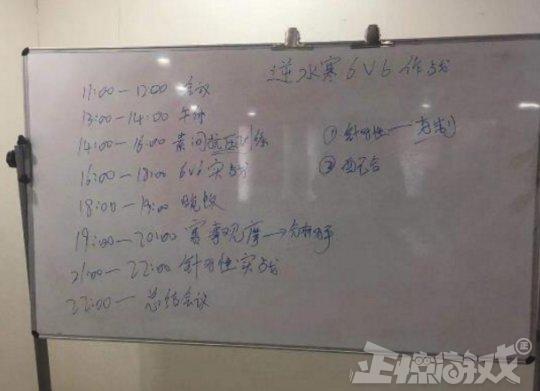 逆水寒6V6作战
11:00—12:00 会议
13:00—14:00 午休
14:00—16:00 素问抗压训练
16:00—18:00 6V6实战
18:00—19:00 晚饭
19:00—20:00 赛事观摩→分析对手
21:00—22:00 针对性实战
22:00— 总结会议
①针对性——
②
正惊游戏
正